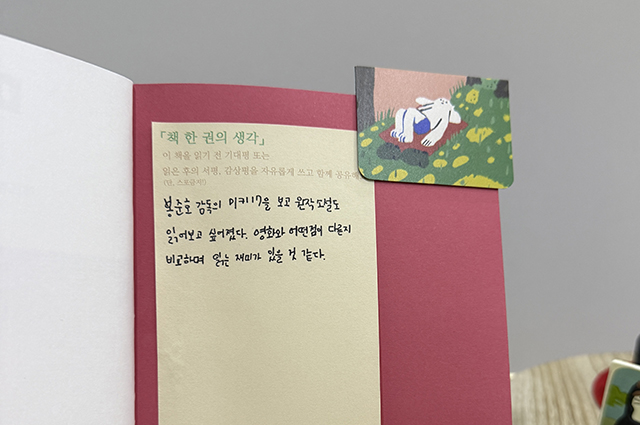 「책 한 권의 생각」
이 책을 읽기 전 기대평 또는
읽은 후의 서평, 감상평을 자유롭게 쓰고 함께 공유해
(단, 스포금지!)
봉준호 감독의 미키17을 보고 원작 소설도
읽어보고 싶어졌다. 영화와 어떤점이 다른지
비교하며 읽는 재미가 있을 것 같다.